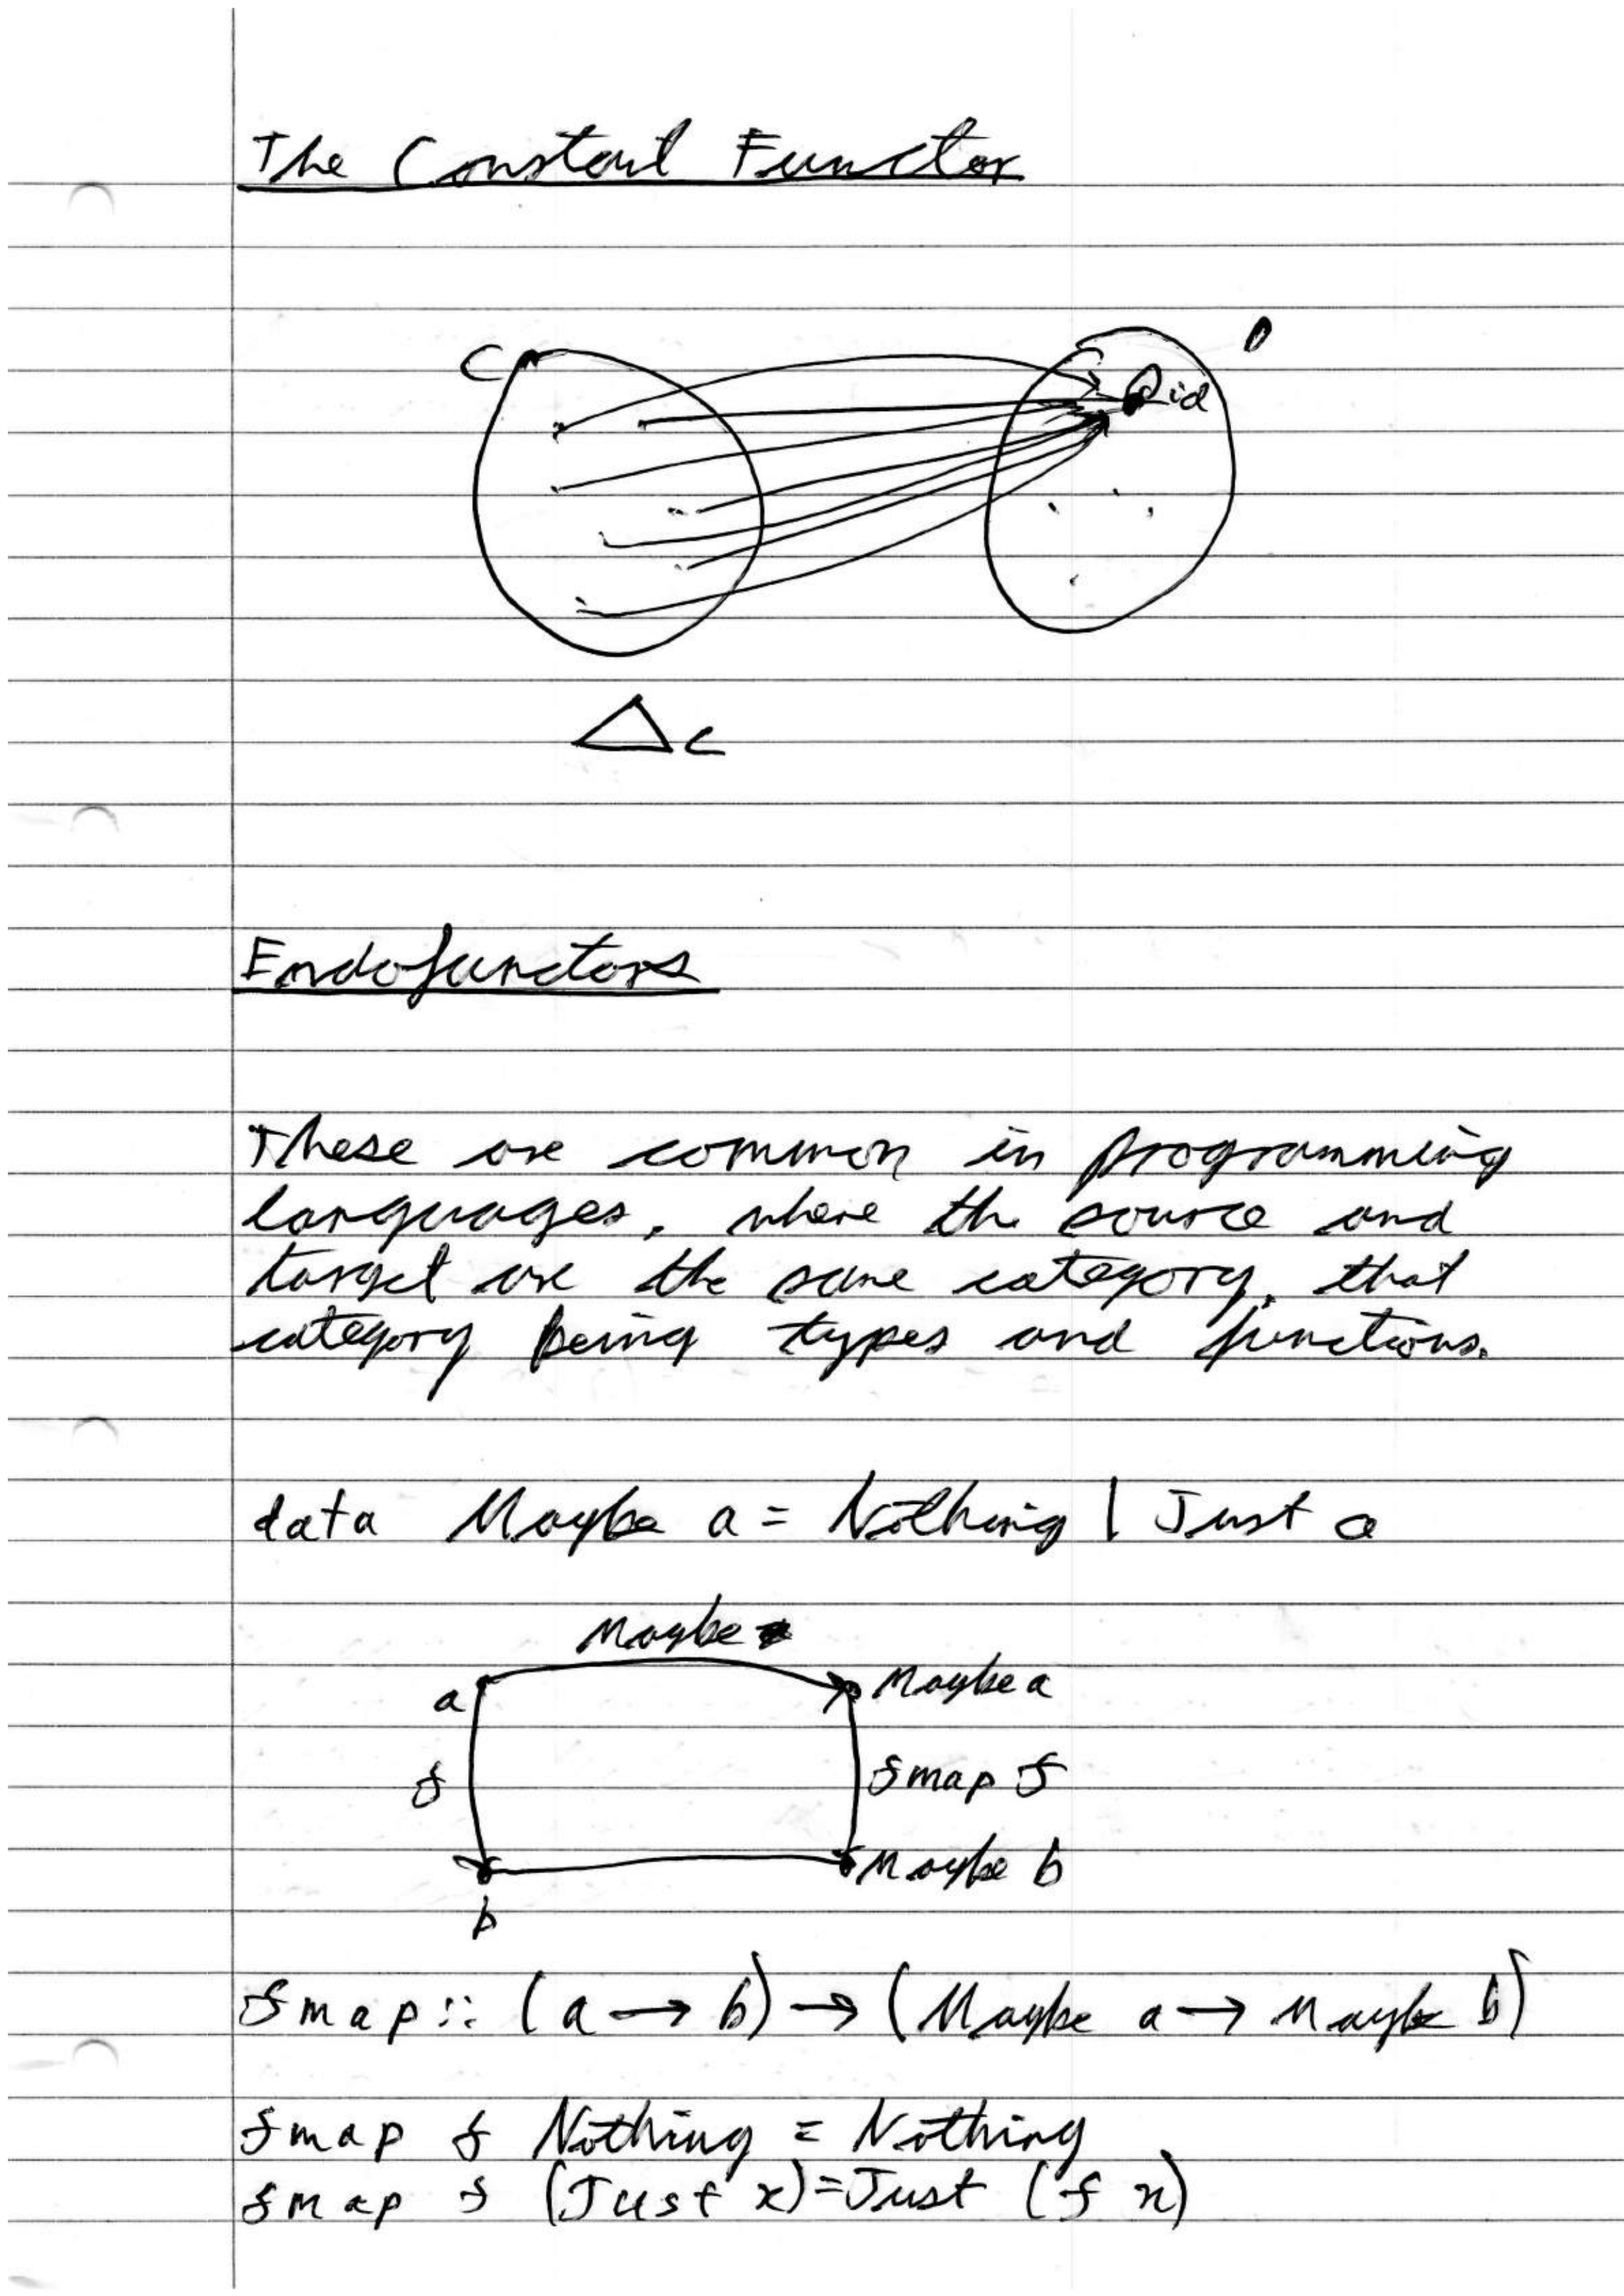 The Constant Functor
C
D
id
Δc
Endofunctors
These are common in programming
languages, where the source and
target are the same category, that
category being types and functions.
data Maybe a = Nothing | Just a
Maybe
a
Maybe a
f
fmap f
Maybe b
b
fmap :: (a → b) → (Maybe a → Maybe b)
fmap f Nothing = Nothing
fmap f (Just x) = Just (f x)